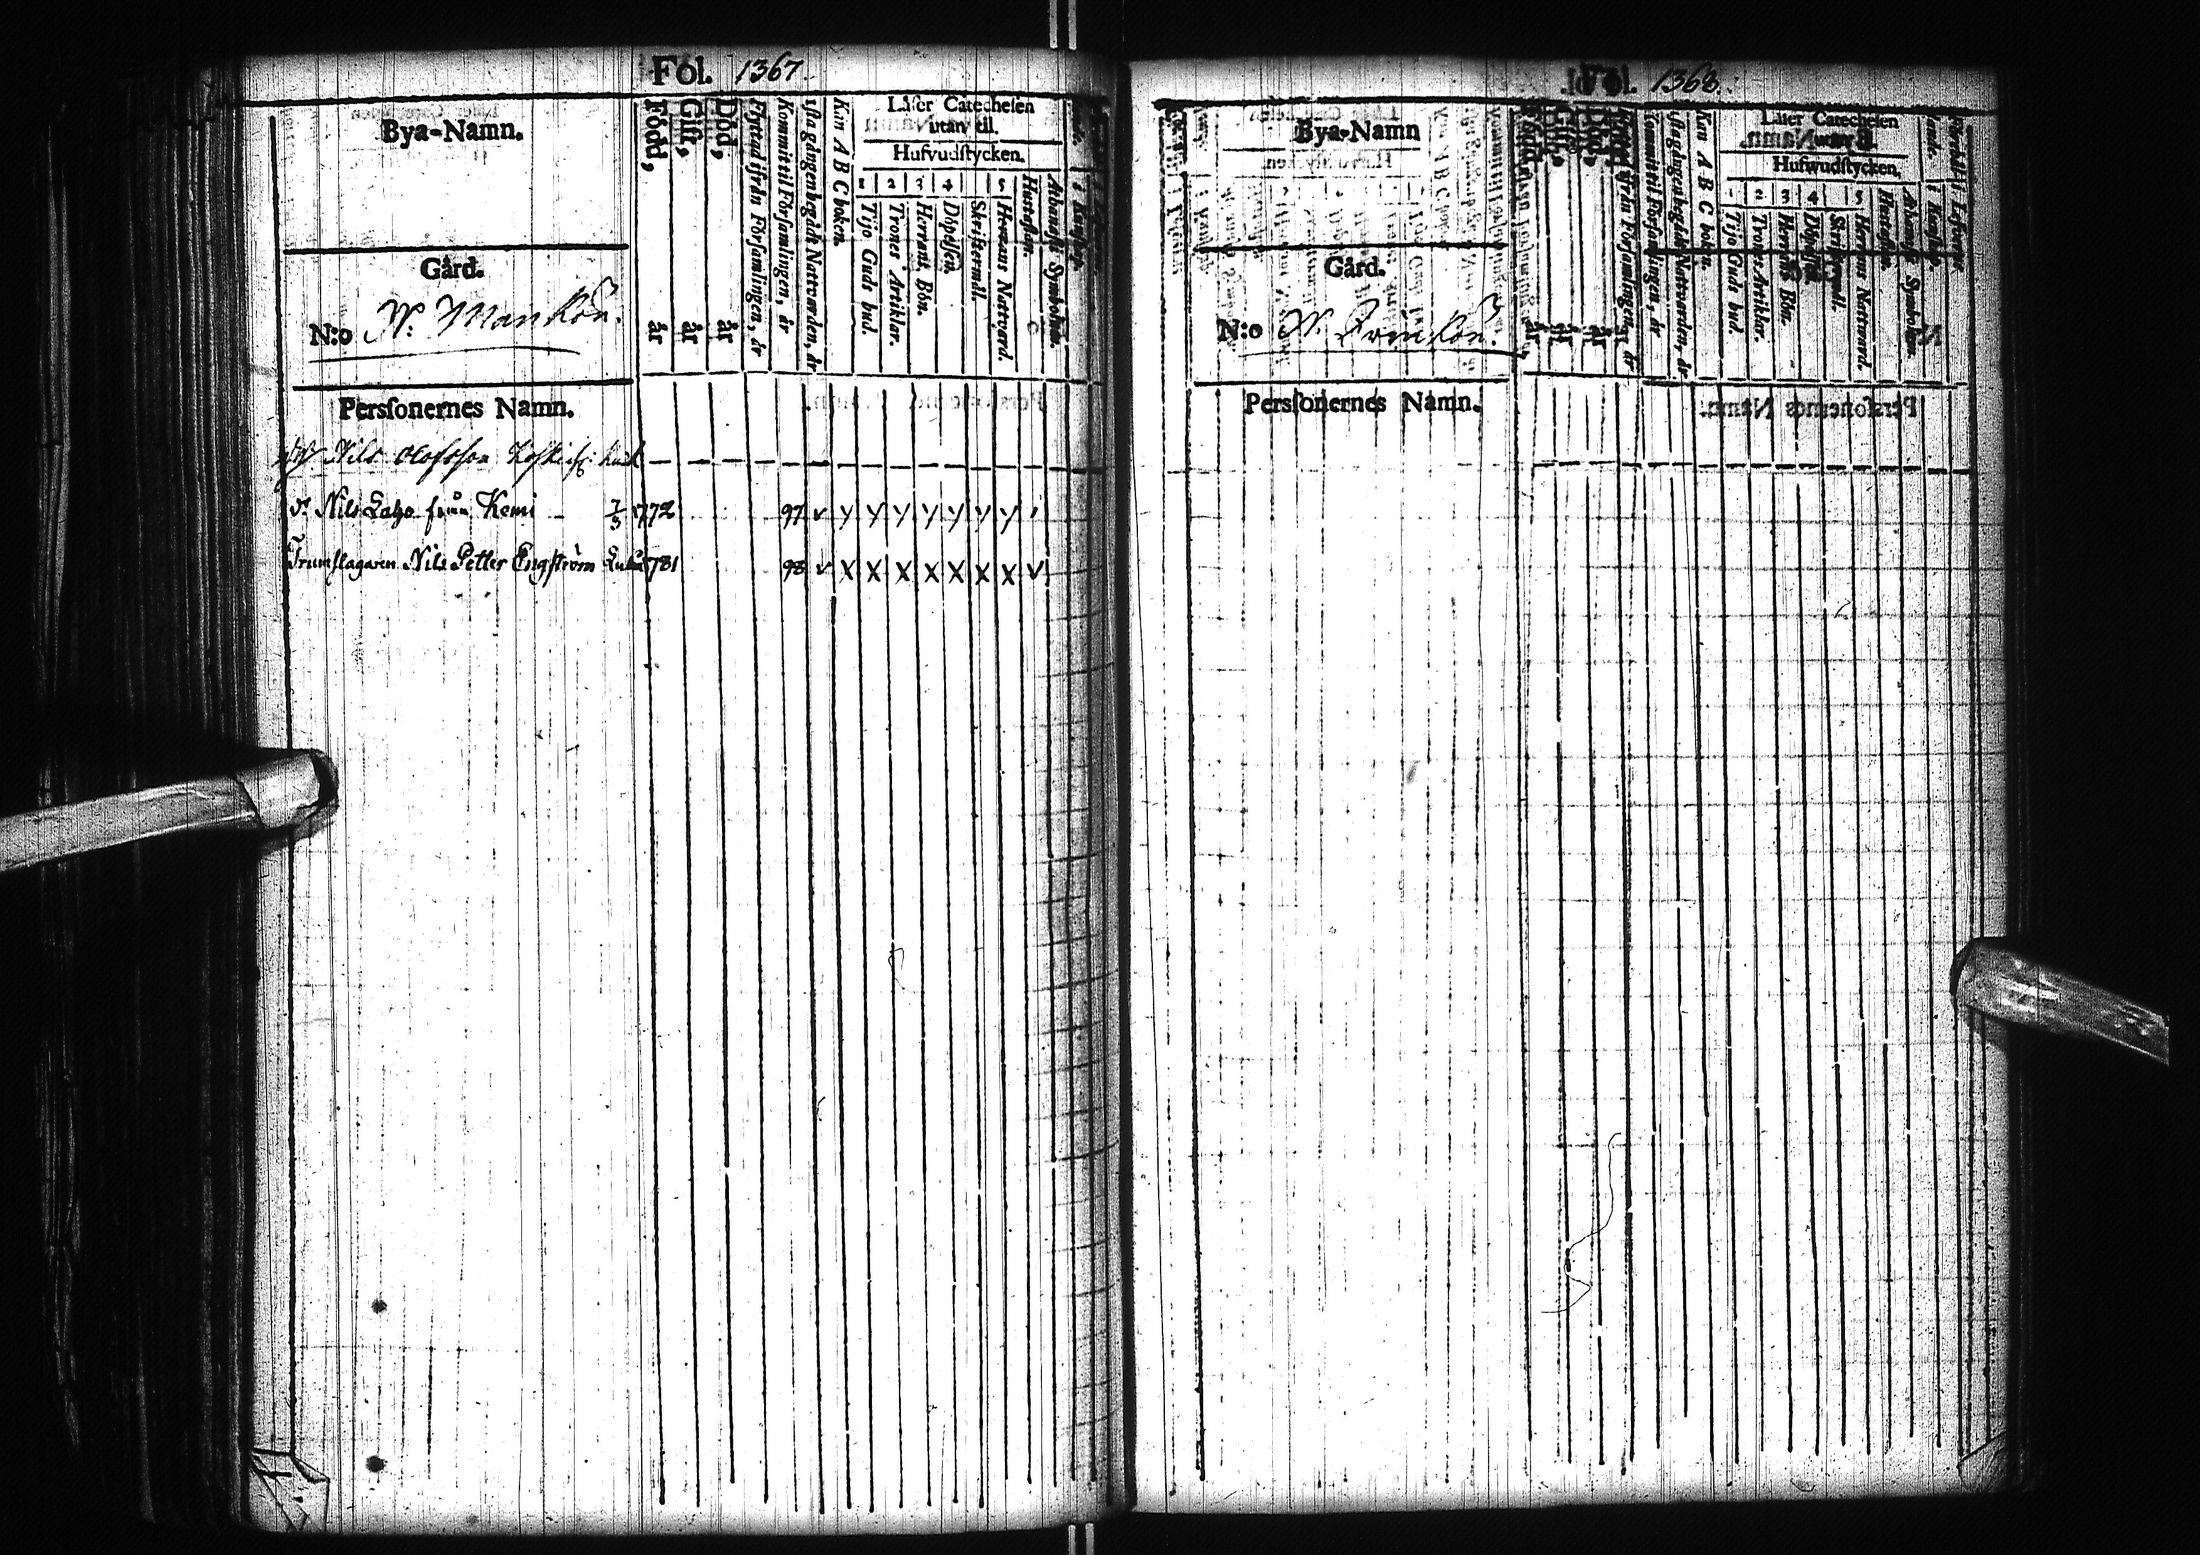 Fol. 1367.
Bya-Namn.
Gård.
N:o N: Mankön.
Född, år
Gift, år
Död, år
Flyttad ifrån Församlingen, år
Kommit til Församlingen, år
1sta gången begådt Nattvarden, år
Kan A B C boken.
Läser Catechesen
utan til.
Hufvudstycken.
1 2 3 4 5
Tijo Guds bud.
Trones Artiklar.
Herrans Bön.
Döpelsen.
Skriftermål.
Herrans Nattvard.
Hustaflan.
Athanasii Symbolum.
Personernes Namn.
Nils Olofsson
Nils Lalzo från Kemi 7/3 1772 97
Trumslagaren Nils Petter Engström 1781 98
Fol. 1368.
Bya-Namn
Gård.
N:o N:
Född, år
Gift, år
Död, år
Kommit til Församlingen, år
1sta gången begådt Nattvarden, år
Kan A B C boken.
Läser Catechesen
Hufvudstycken.
1 2 3 4 5
Tijo Guds bud.
Trones Artiklar.
Herrans Bön.
Döpelsen.
Skriftermål.
Herrans Nattvard.
Hustaflan.
Athanasii Symbolum.
Personernes Namn.